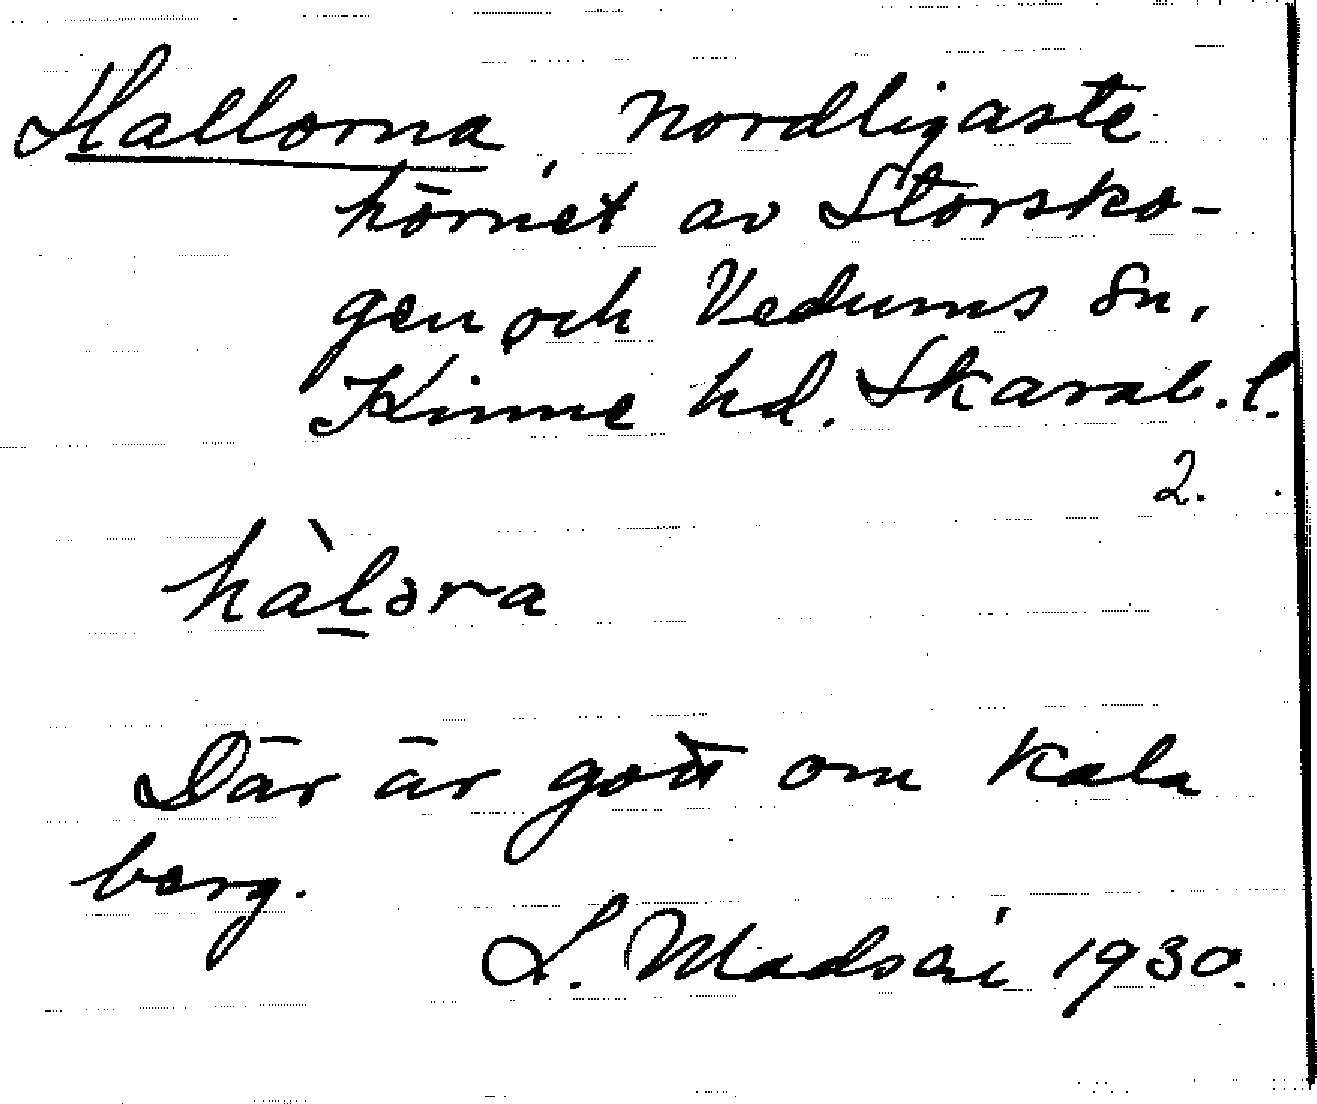 Hallorna, nordligaste
hörnet av Storsko-
gen och Vedums sn,
Kinne hd. Skarab. l.
2.
hàlora
Där är gott om kala
berg.
1930.